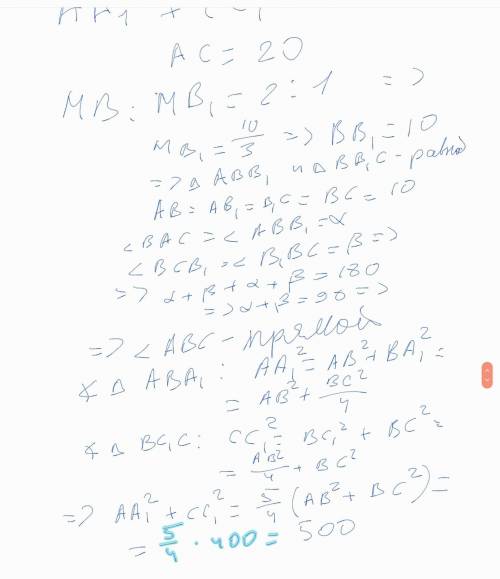 AA1 + CC1
AC = 20
MB : MB1 = 2 : 1 =>
MB1 = 10/3 => BB1 = 10
=> Δ ABB1 и Δ BB1C - равноб
AB = AB1 = B1C = BC = 10
∠BAC = ∠ABB1 = α
∠BCB1 = ∠B1BC = β =>
=> α + β + α + β = 180
=> α + β = 90 =>
=> ∠ABC - прямой
∢ Δ ABA1 : AA1² = AB² + BA1² =
= AB² + BC²/4
∢ Δ BC1C : CC1² = BC1² + BC² =
= AB²/4 + BC²
=> AA1² + CC1² = 5/4 (AB² + BC²) =
= 5/4 · 400 = 500